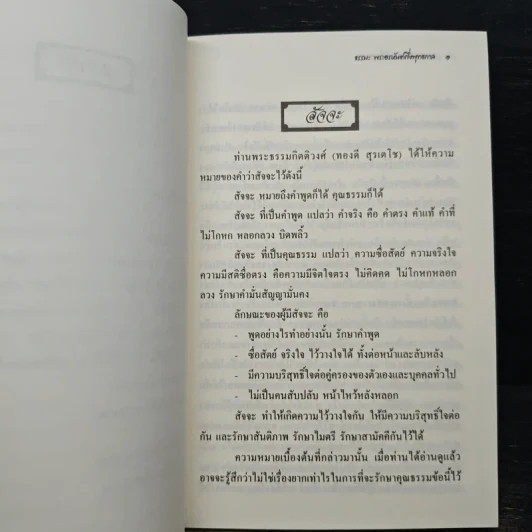 ธรรมะ พระอรหันต์กึ่งพุทธกาล ๑
สัจจะ
ท่านพระธรรมกิตติวงศ์ (ทองดี สุรเตโช) ได้ให้ความ
หมายของคำว่าสัจจะไว้ดังนี้
สัจจะ หมายถึงคำพูดก็ได้ คุณธรรมก็ได้
สัจจะ ที่เป็นคำพูด แปลว่า คำจริง คือ คำตรง คำแท้ คำที่
ไม่โกหก หลอกลวง บิดพลิ้ว
สัจจะ ที่เป็นคุณธรรม แปลว่า ความซื่อสัตย์ ความจริงใจ
ความมีสติซื่อตรง คือความมีจิตใจตรง ไม่คิดคด ไม่โกหกหลอก
ลวง รักษาคำมั่นสัญญามั่นคง
ลักษณะของผู้มีสัจจะ คือ
- พูดอย่างไรทำอย่างนั้น รักษาคำพูด
- ซื่อสัตย์ จริงใจ ไว้วางใจได้ ทั้งต่อหน้าและลับหลัง
- มีความบริสุทธิ์ใจต่อคู่ครองของตัวเองและบุคคลทั่วไป
- ไม่เป็นคนสับปลับ หน้าไหว้หลังหลอก
สัจจะ ทำให้เกิดความไว้วางใจกัน ให้มีความบริสุทธิ์ใจต่อ
กัน และรักษาสันติภาพ รักษาไมตรี รักษาสามัคคีกันไว้ได้
ความหมายเบื้องต้นที่กล่าวมานั้น เมื่อท่านได้อ่านดูแล้ว
อาจจะรู้สึกว่าไม่ใช่เรื่องยากเท่าไรในการที่จะรักษาคุณธรรมข้อนี้ไว้